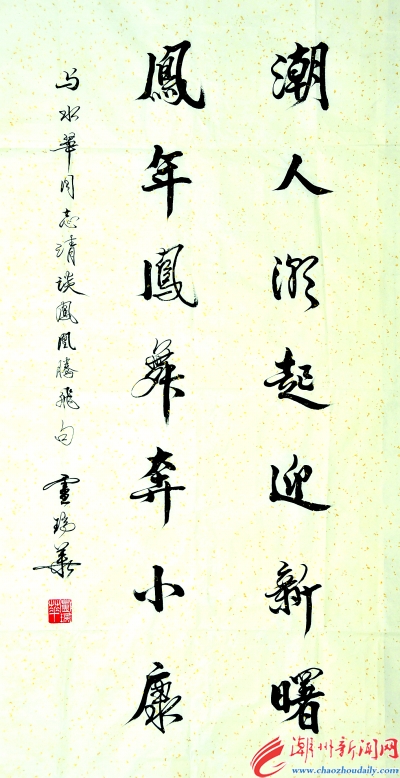 潮人潮起迎新曙
鳳年鳳舞奔小康
与水華同志清谈鳳凰腾飛句 盧瑞華
潮州新闻网
www.chaozhoudaily.com